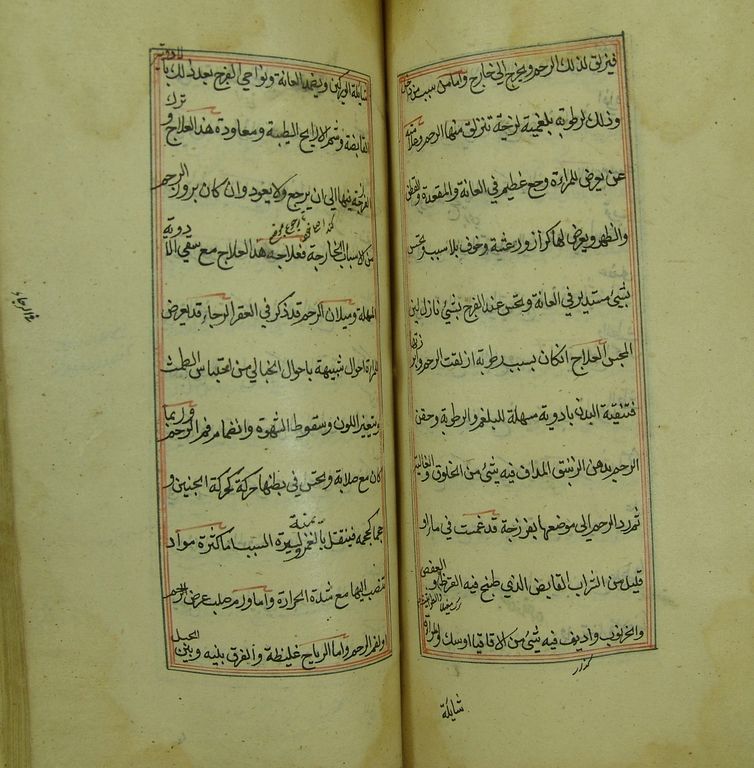 فينزلق لذلك الرحم ويخرج الى خارج واما من سبب من داخل
وذلك لرطوبة بلغمية لزجة تنزلق منها الرحم وعلامته
عن يعرض للمراءة وجع عظيم في العانة والمقعدة والقطن
والظهر ويعرض لها كزاز ورعشة وخوف بلا سبب وتحس
بشئ مستدير في العانة وتحس عند الفرج بشئ نازل لين
المجس العلاج ان كان بسبب رطوبة ازلقت الرحم وابرزتها
فتنقية البدن بادوية مسهلة للبلغم والرطوبة وحقن
الرحم بدهن الزنبق المداف فيه شئ من الخلوق والغالية
ثم رد الرحم الى موضعها بفرزجة قد غمست في ماء او
قليل من الشراب القابض الذي طبخ فيه القرظ او العفص
والخرنوب واديف فيه شئ من الاقاقيا او سك
شايكة
شايلة الوركين ويضمد العانة ونواحي الفرج بعد ذلك بالادوية
القابضة وشم الارايح الطيبة ومعاودة هذا العلاج وترك
فيها الى ان يرجع ولا يعود وان كان بروز الرحم
من الاسباب الخارجة فعلاجه هذا العلاج مع سقي الادوية
المسهلة وميلان الرحم قد ذكر في العقر الرجاء قد يعرض
للمراة احوال شبيهة باحوال الحبالي من احتباس الطمث
وتغير اللون وسقوط الشهوة وانضمام فم الرحم وربما
كان مع صلابة وتحس في بطنها حركة كحركة الجنين و
حجما كحجمه فينتقل بالغمز يمنة ويسرة السبب اما كثرة مواد
تنصب اليها مع شدة الحرارة واما ورم صلب عرض للرحم
او لفم الرحم واما الرياح غليظة والفرق بينه وبين الحبل
في الرجاء